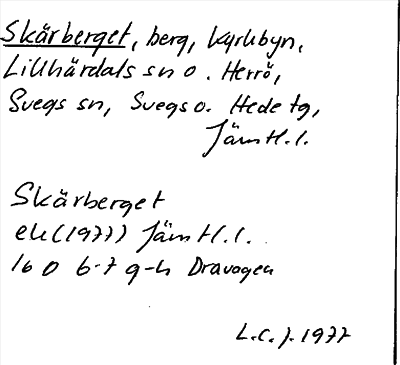 Skärberget, berg, Kyrkbyn,
Lillhärdals sn o. Herrö,
Svegs sn, Svegs o. Hede tg,
Jämtl.l.
Skärberget
ek (1977) Jämtl.l.
16 D 6-7 g-h Dravagen
L.C.J. 1977